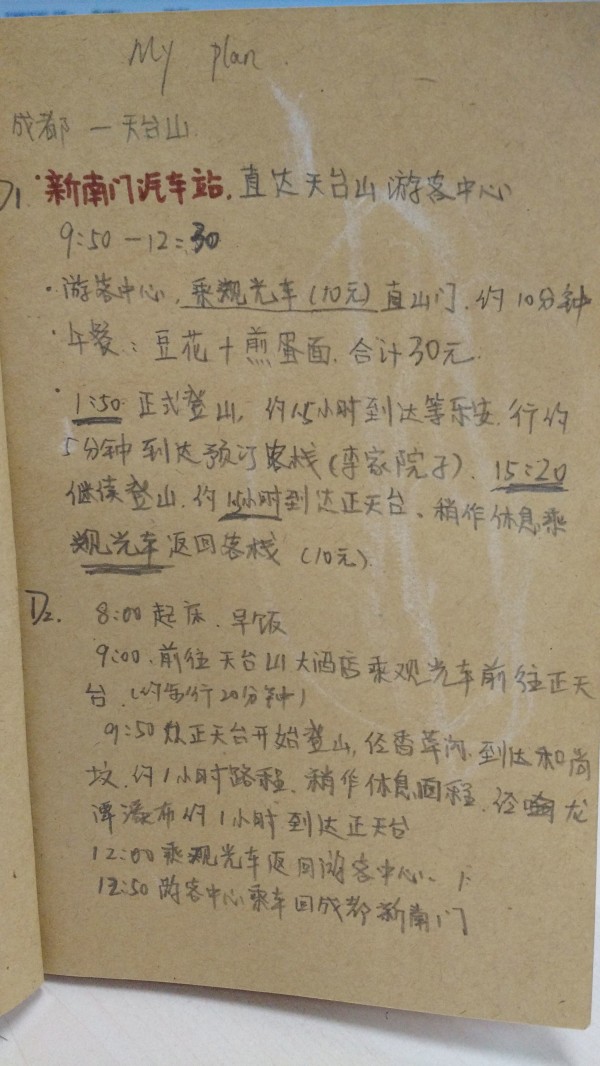 My plan.
成都 — 天台山
D1 ·新南门汽车站,直达天台山游客中心
9:50 — 12:30
·游客中心,乘观光车(10元)直山门,约10分钟
·午餐:豆花+煎蛋面,合计30元
·1:50 正式登山,约1.5小时到达等乐安,行约
5分钟到达预订客栈(李家院子),15:20
继续登山,约1.5小时到达正天台、稍作休息乘
观光车返回客栈(10元)
D2. 8:00 起床、早饭
9:00.前往天台山大酒店乘观光车前往正天
台(约步行20分钟)
9:50 从正天台开始登山,经香草沟,到达和尚
坟,约1小时路程、稍作休息回程,经响龙
潭瀑布约1小时到达正天台
12:00乘观光车返回游客中心、
12:50 游客中心乘车回成都新南门